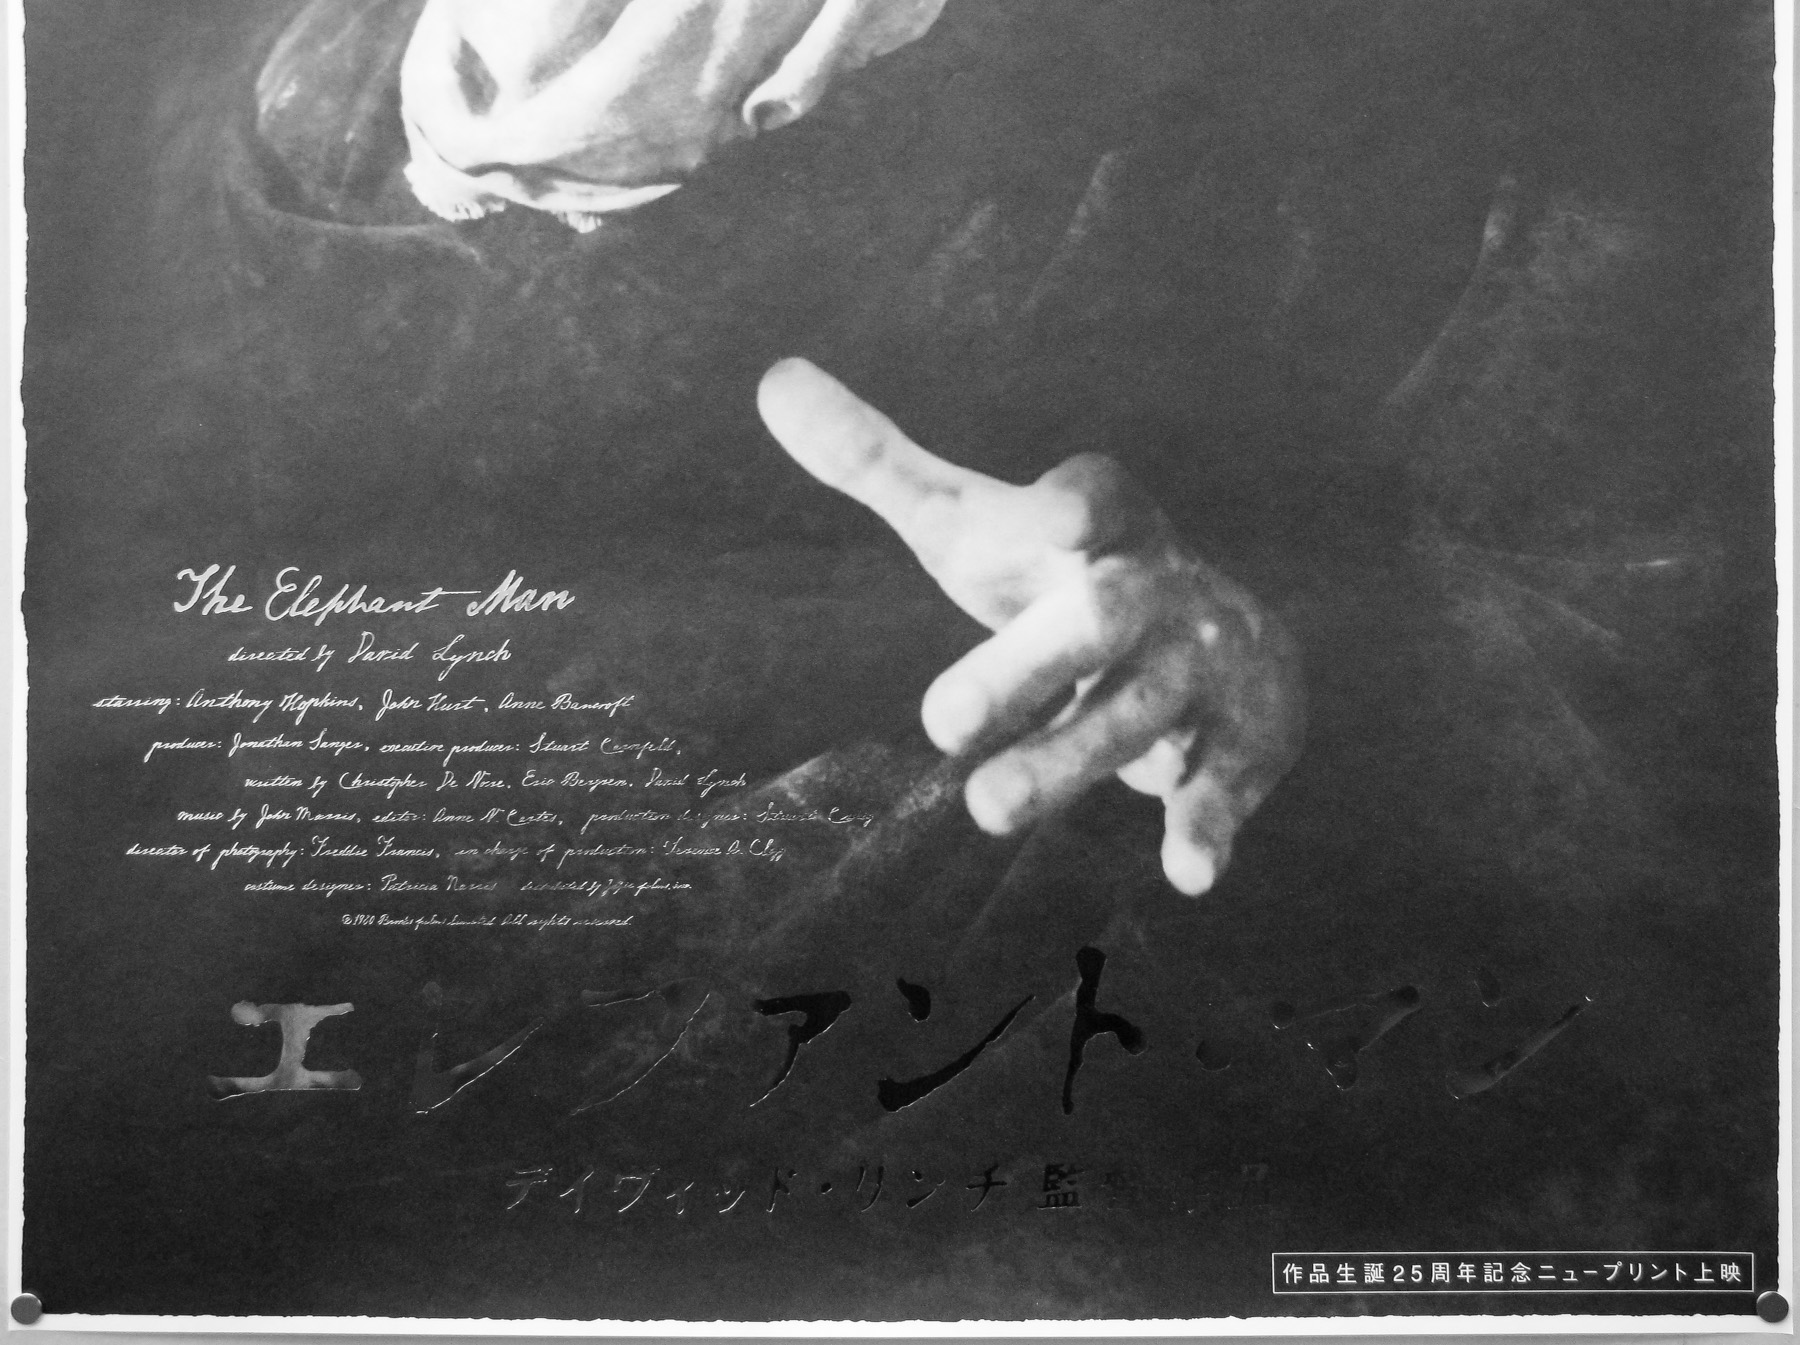 The Elephant Man
directed by David Lynch
starring: Anthony Hopkins, John Hurt, Anne Bancroft
producer: Jonathan Sanger, executive producer: Stuart Cornfeld,
written by Christopher De Vore, Eric Bergren, David Lynch
music by John Morris, editor: Anne V. Coates, production designer: Stuart Craig
director of photography: Freddie Francis, in charge of production: Terence A. Clegg
costume designer: Patricia Norris distributed by
©1980 Brooks films limited All rights reserved.
エレファント・マン
デイヴィッド・リンチ監
作品生誕25周年記念ニュープリント上映